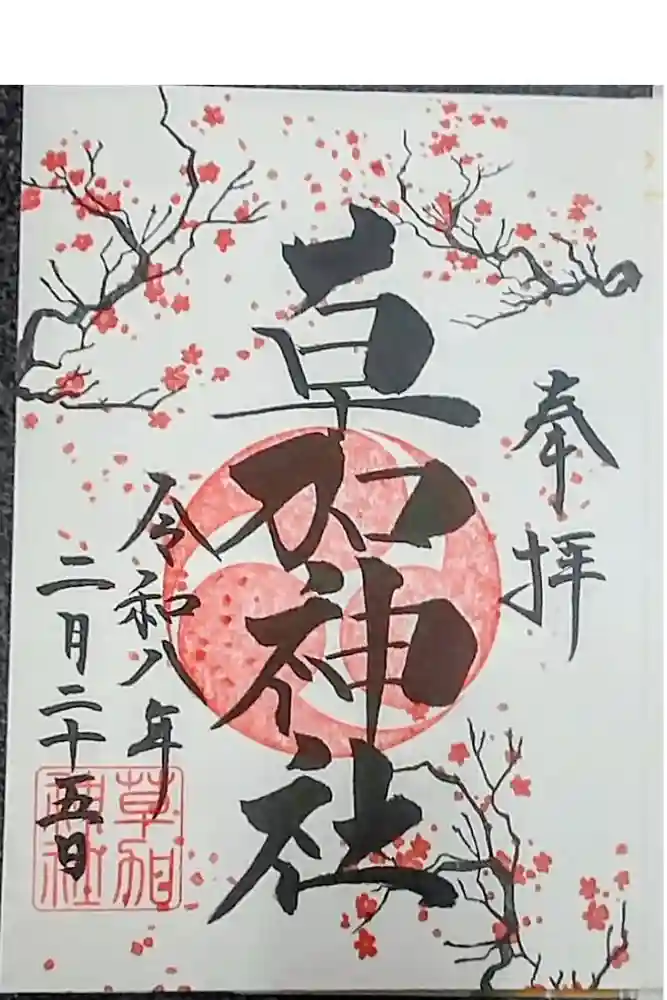 奉拝
草加神社
令和八年
二月二十五日
草加
神社